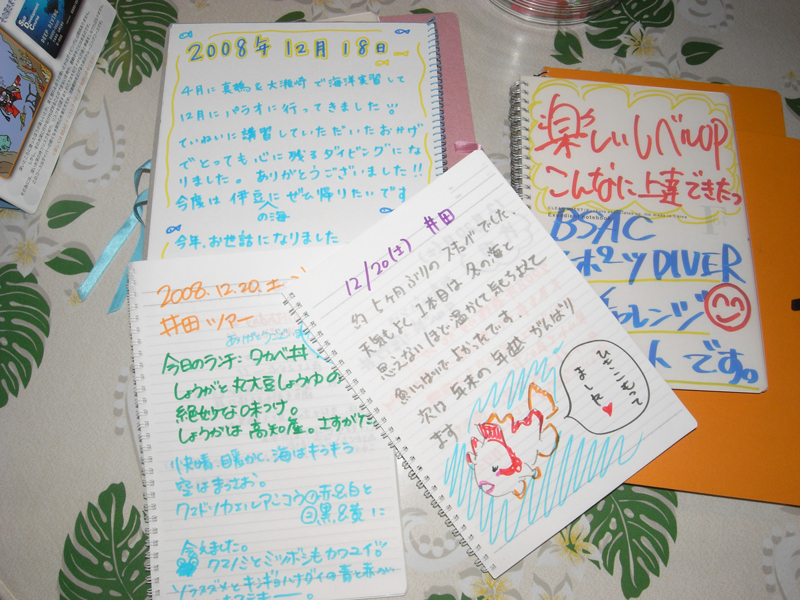 2008年12月18日
4月に真鶴&大瀬崎で海洋実習して
12月にパラオに行ってきました!!
ていねいに講習していただいたおかげ
でとっても心に残るダイビングにな
りました。ありがとうございました!!
今度は伊豆にぜひ帰りたいです
の海
今年、お世話になりました
楽しいレベルUP
こんなに上達できたっ
BSAC
スポーツDIVER
チャレンジ
です。
12/20(土) 井田
約5ヶ月ぶりのスキンダでした。
天気もよく、1本目は冬の海と
思えないほど温かくて気もちよくて
魚もいっぱいでよかったです。
次は年末の年越がんばり
ます
ひきこもって
ました♥
2008.12.20.土
井田ツアー
今日のランチ:タカベ丼
しょうがと丸大豆しょうゆの
絶妙な味つけ。
しょうがは高知産。
快晴、暖かく、海はキラキラ
空はまっさお。
クマドリカエルアンコウ①赤&白と
②黒&黄に
会えました。
クマノミとミツボシもカワユイ♡
ソラスズメとキンギョハナダイの青と赤の